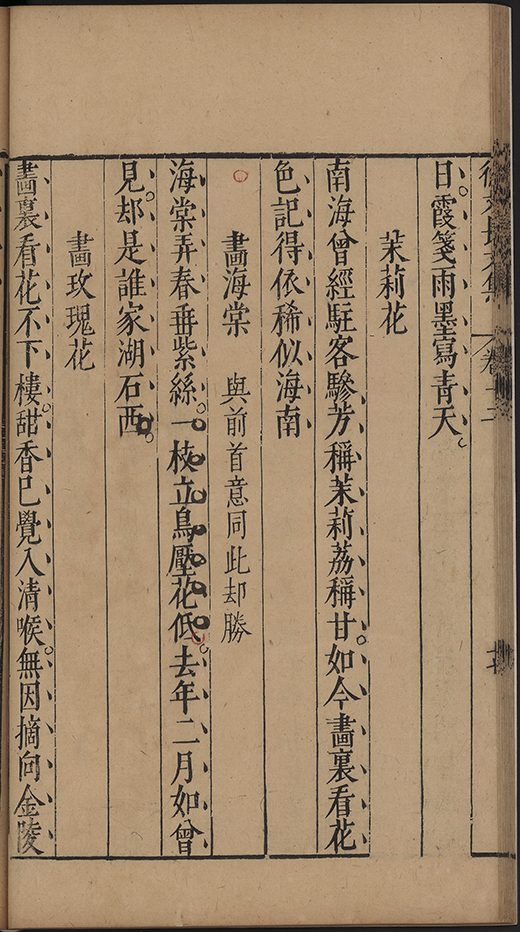 卷十二
日霞箋雨墨寫青天
茉莉花
南海曾經駐客驂芳稱茉莉荔稱甘如今畵裏看花
色記得依稀似海南
畵海棠 與前首意同此却勝
海棠弄春垂紫絲一枝立鳥壓花低去年二月如曾
見却是誰家湖石西
畵玫瑰花
畵裏看花不下樓甜香已覺入清喉無因摘向金陵